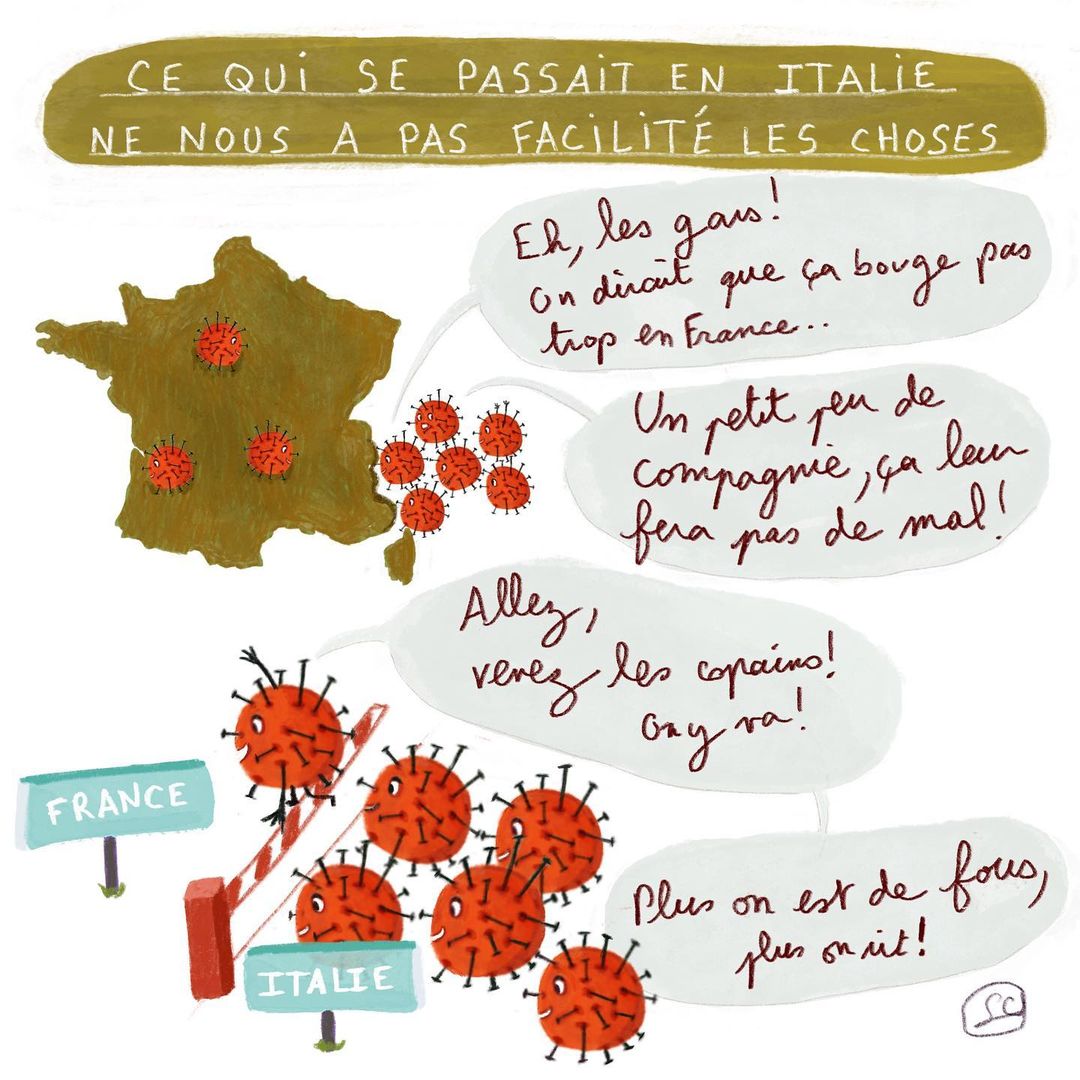 CE QUI SE PASSAIT EN ITALIE
NE NOUS A PAS FACILITÉ LES CHOSES
Eh, les gars!
On dirait que ça bouge pas
trop en France..
Un petit peu de
compagnie, ça leur
fera pas de mal!
Allez,
venez les copains!
on y va!
FRANCE
Plus on est de fous,
plus on rit!
ITALIE
SC